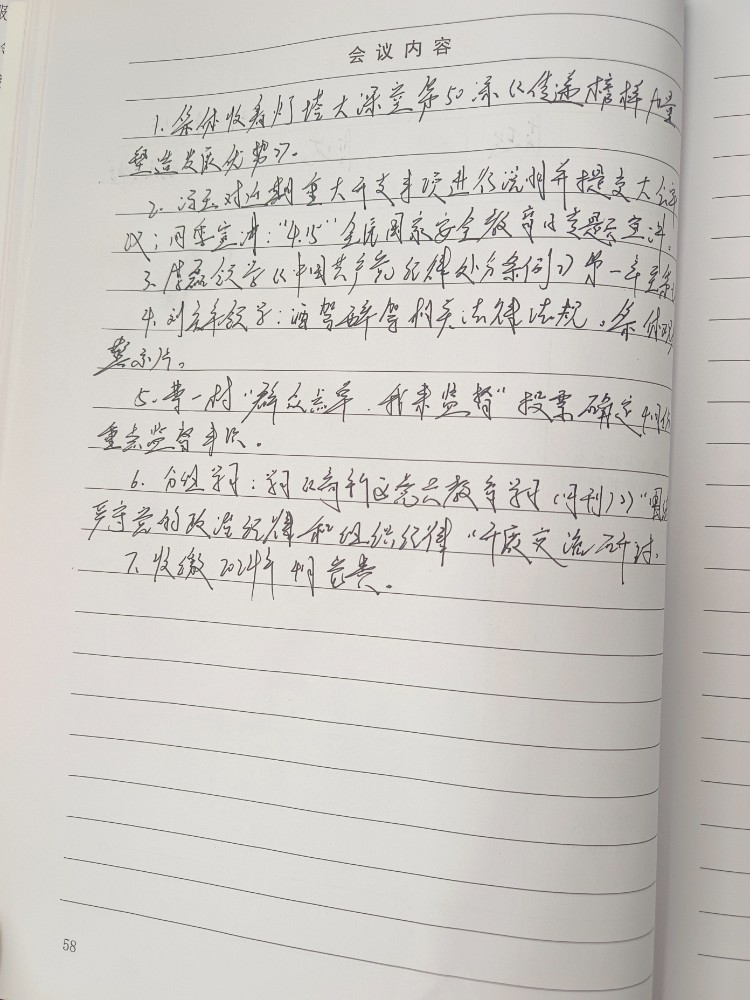 会议内容
1. 集体收看灯塔大课堂第50课《传递榜样力量
塑造发展优势》。
2. 对近期重大干支事项进行说明并提交大会审
议;同季宣讲:“4.15”全民国家安全教育日专题宣讲。
3. 李磊领学《中国共产党纪律处分条例》第一章至第
4. 刘 领学:酒驾醉驾相关法律法规。集体观
警示片。
5. 第一村“群众点单、我来监督”投票确定4月份
重点监督事项。
6. 分组学习:学习《高新区党员教育学习(月刊)》“围绕
严守党的政治纪律和组织纪律”开展交流研讨。
7. 收缴2024年4月党费。
58